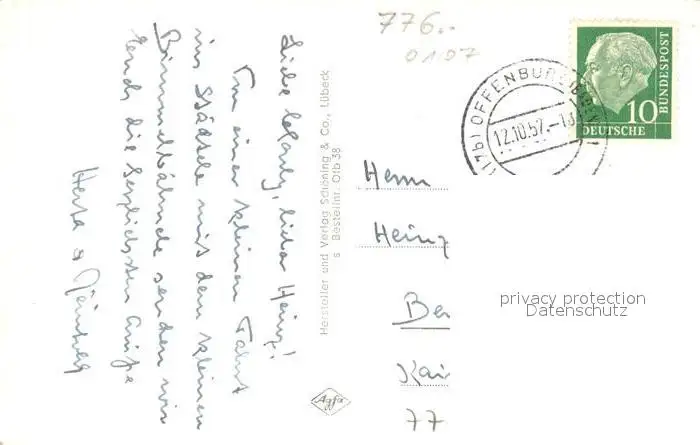 776.-
0107
Liebe
lieber Heinz!
Von einer kleinen Fahrt
ins Städtle mit dem kleinen
Bimmelbähnle senden wir
Euch die herzlichsten Grüße
Herta &
Hersteller und Verlag Schöning & Co., Lübeck
s Bestellnr. Ofb 38
Agfa
(17b) OFFENBURG
12.10.57.-
10
DEUTSCHE
BUNDESPOST
Herrn
Heinz
Be
Kai
77
privacy protection
Datenschutz